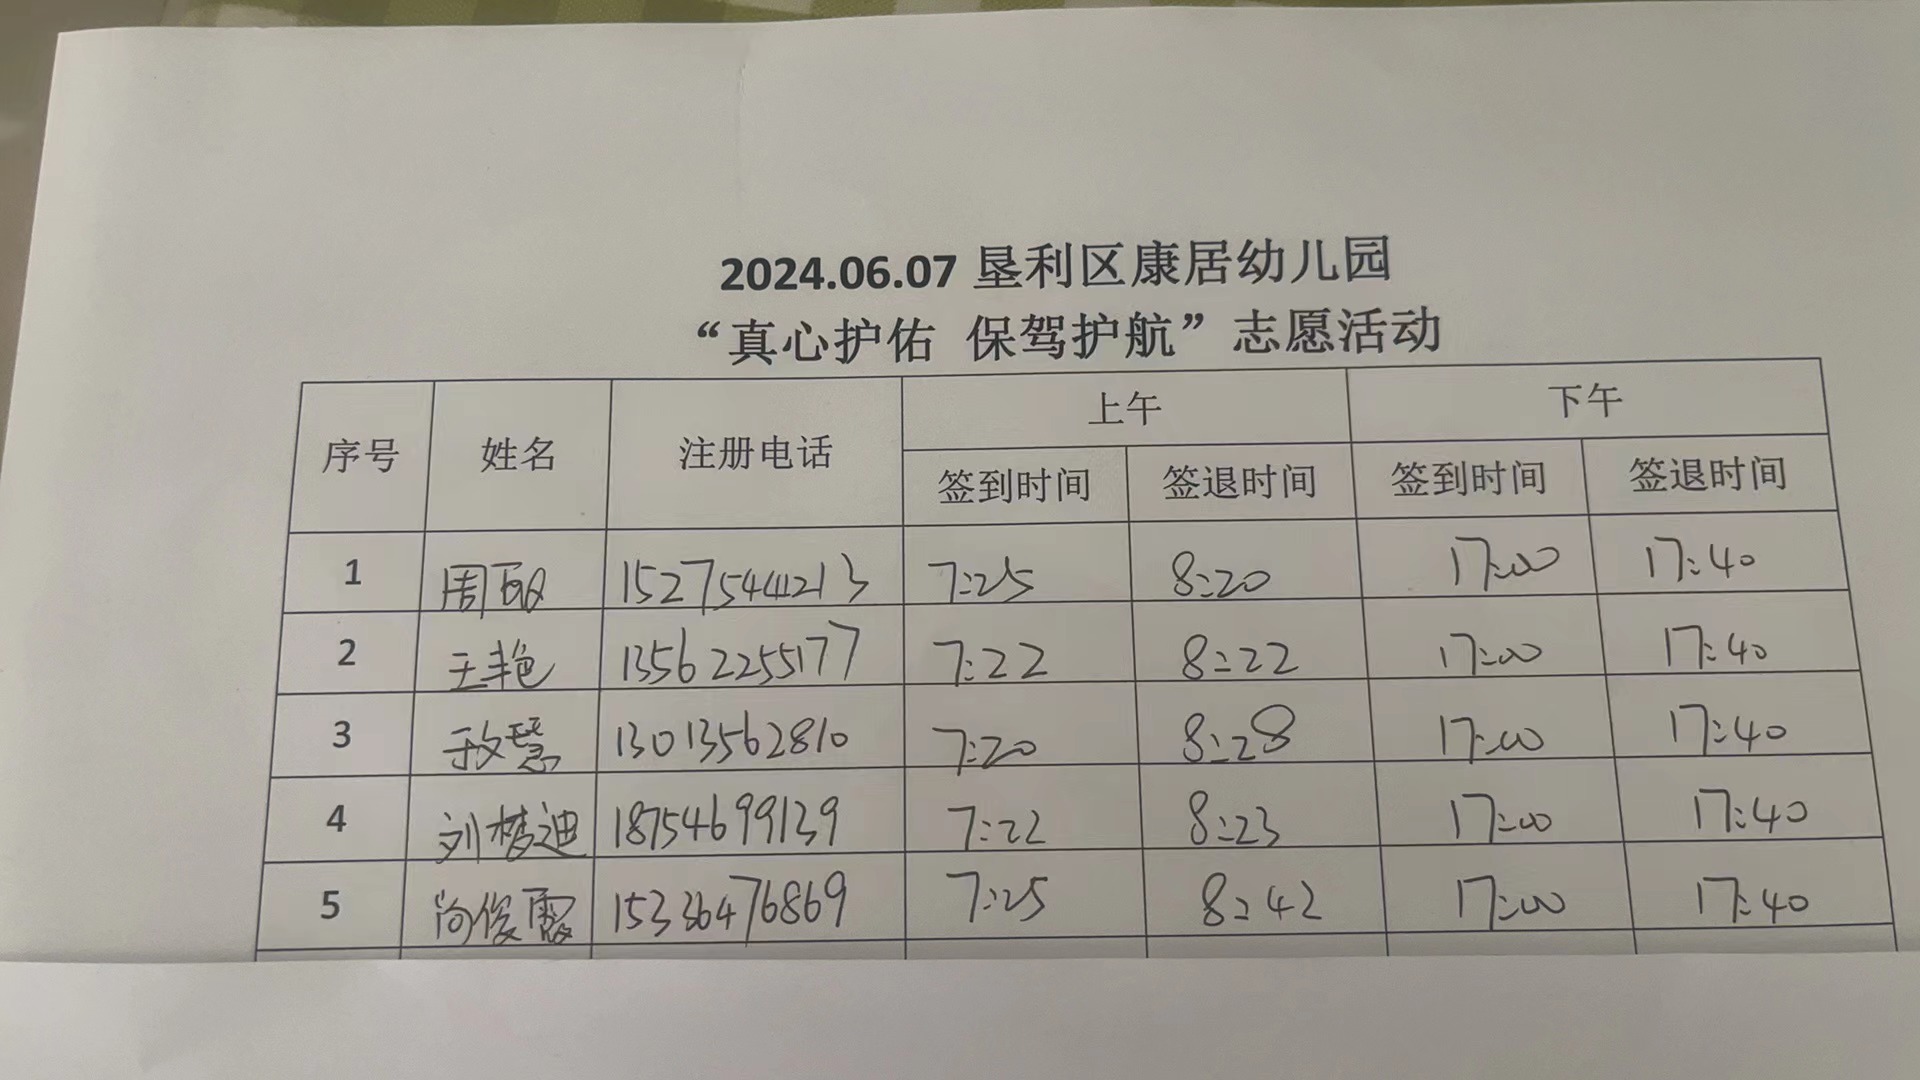 2024.06.07 垦利区康居幼儿园
“真心护佑 保驾护航”志愿活动
序号 姓名 注册电话 上午 下午
签到时间 签退时间 签到时间 签退时间
1 周 15275441213 7:25 8:20 17:00 17:40
2 王艳 13562255177 7:22 8:22 17:00 17:40
3 慧 13013562810 7:20 8:28 17:00 17:40
4 刘梦迪 18754699139 7:22 8:23 17:00 17:40
5 尚俊霞 15336476869 7:25 8:42 17:00 17:40